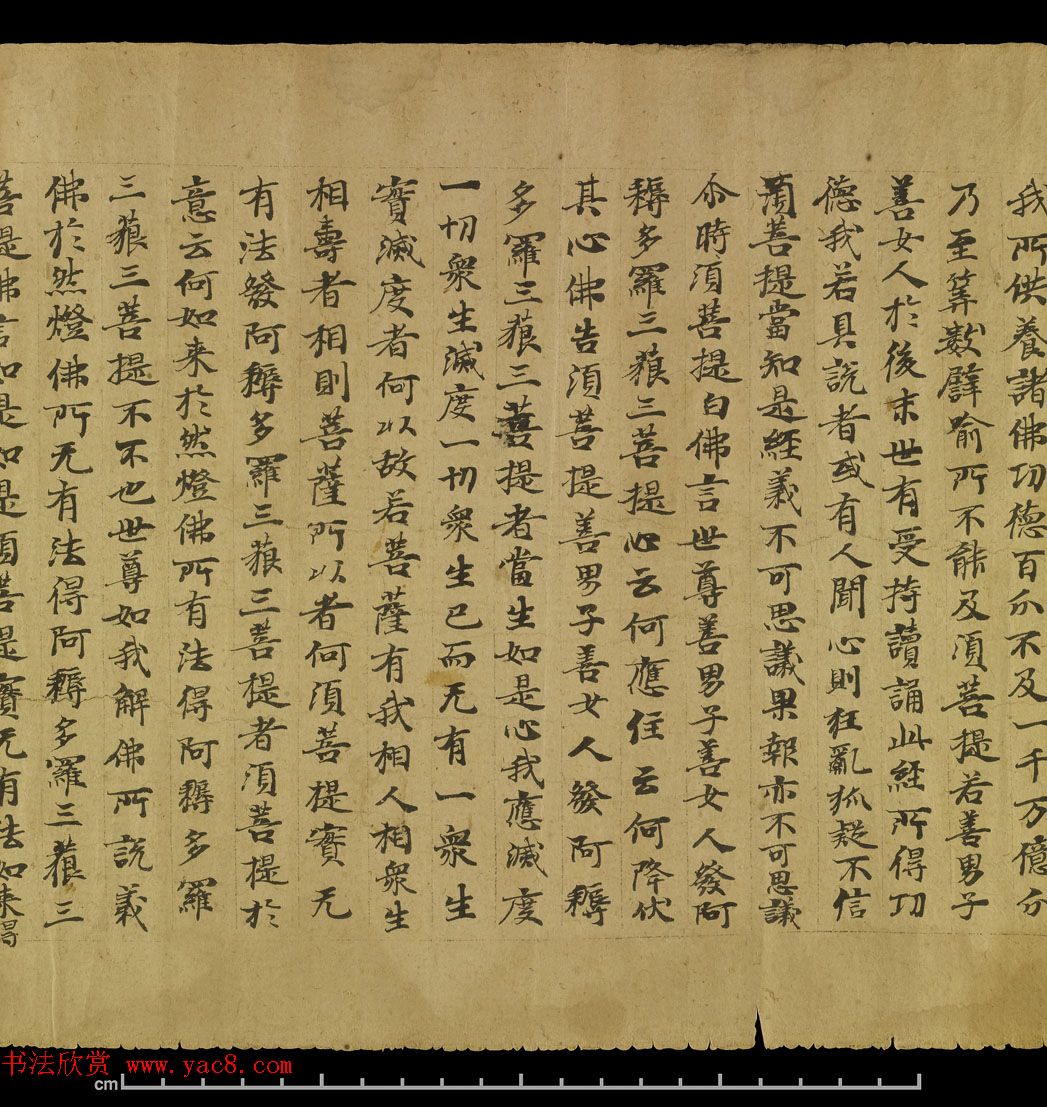 我所供養諸佛功德百分不及一千万億分
乃至筭數譬喻所不能及須菩提若善男子
善女人於後末世有受持讀誦此經所得功
德我若具說者或有人聞心則狂亂狐疑不信
須菩提當知是經義不可思議果報亦不可思議
尒時須菩提白佛言世尊善男子善女人發阿
耨多羅三藐三菩提心云何應住云何降伏
其心佛告須菩提善男子善女人發阿耨
多羅三藐三菩提者當生如是心我應滅度
一切衆生滅度一切衆生已而无有一衆生
實滅度者何以故若菩薩有我相人相衆生
相壽者相則菩薩所以者何須菩提實无
有法發阿耨多羅三藐三菩提者須菩提於
意云何如来於然燈佛所有法得阿耨多羅
三藐三菩提不不也世尊如我解佛所說義
佛於然燈佛所无有法得阿耨多羅三藐三
菩提佛言如是如是須菩提實无有法如来得
书法欣赏 www.yac8.com
cm